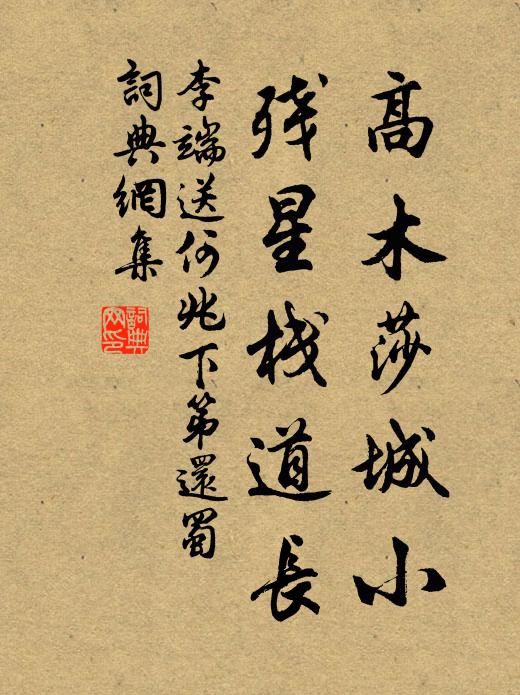 高木莎城小
残星栈道長
李端送何兆下第還蜀
詞典網集
詞典網印